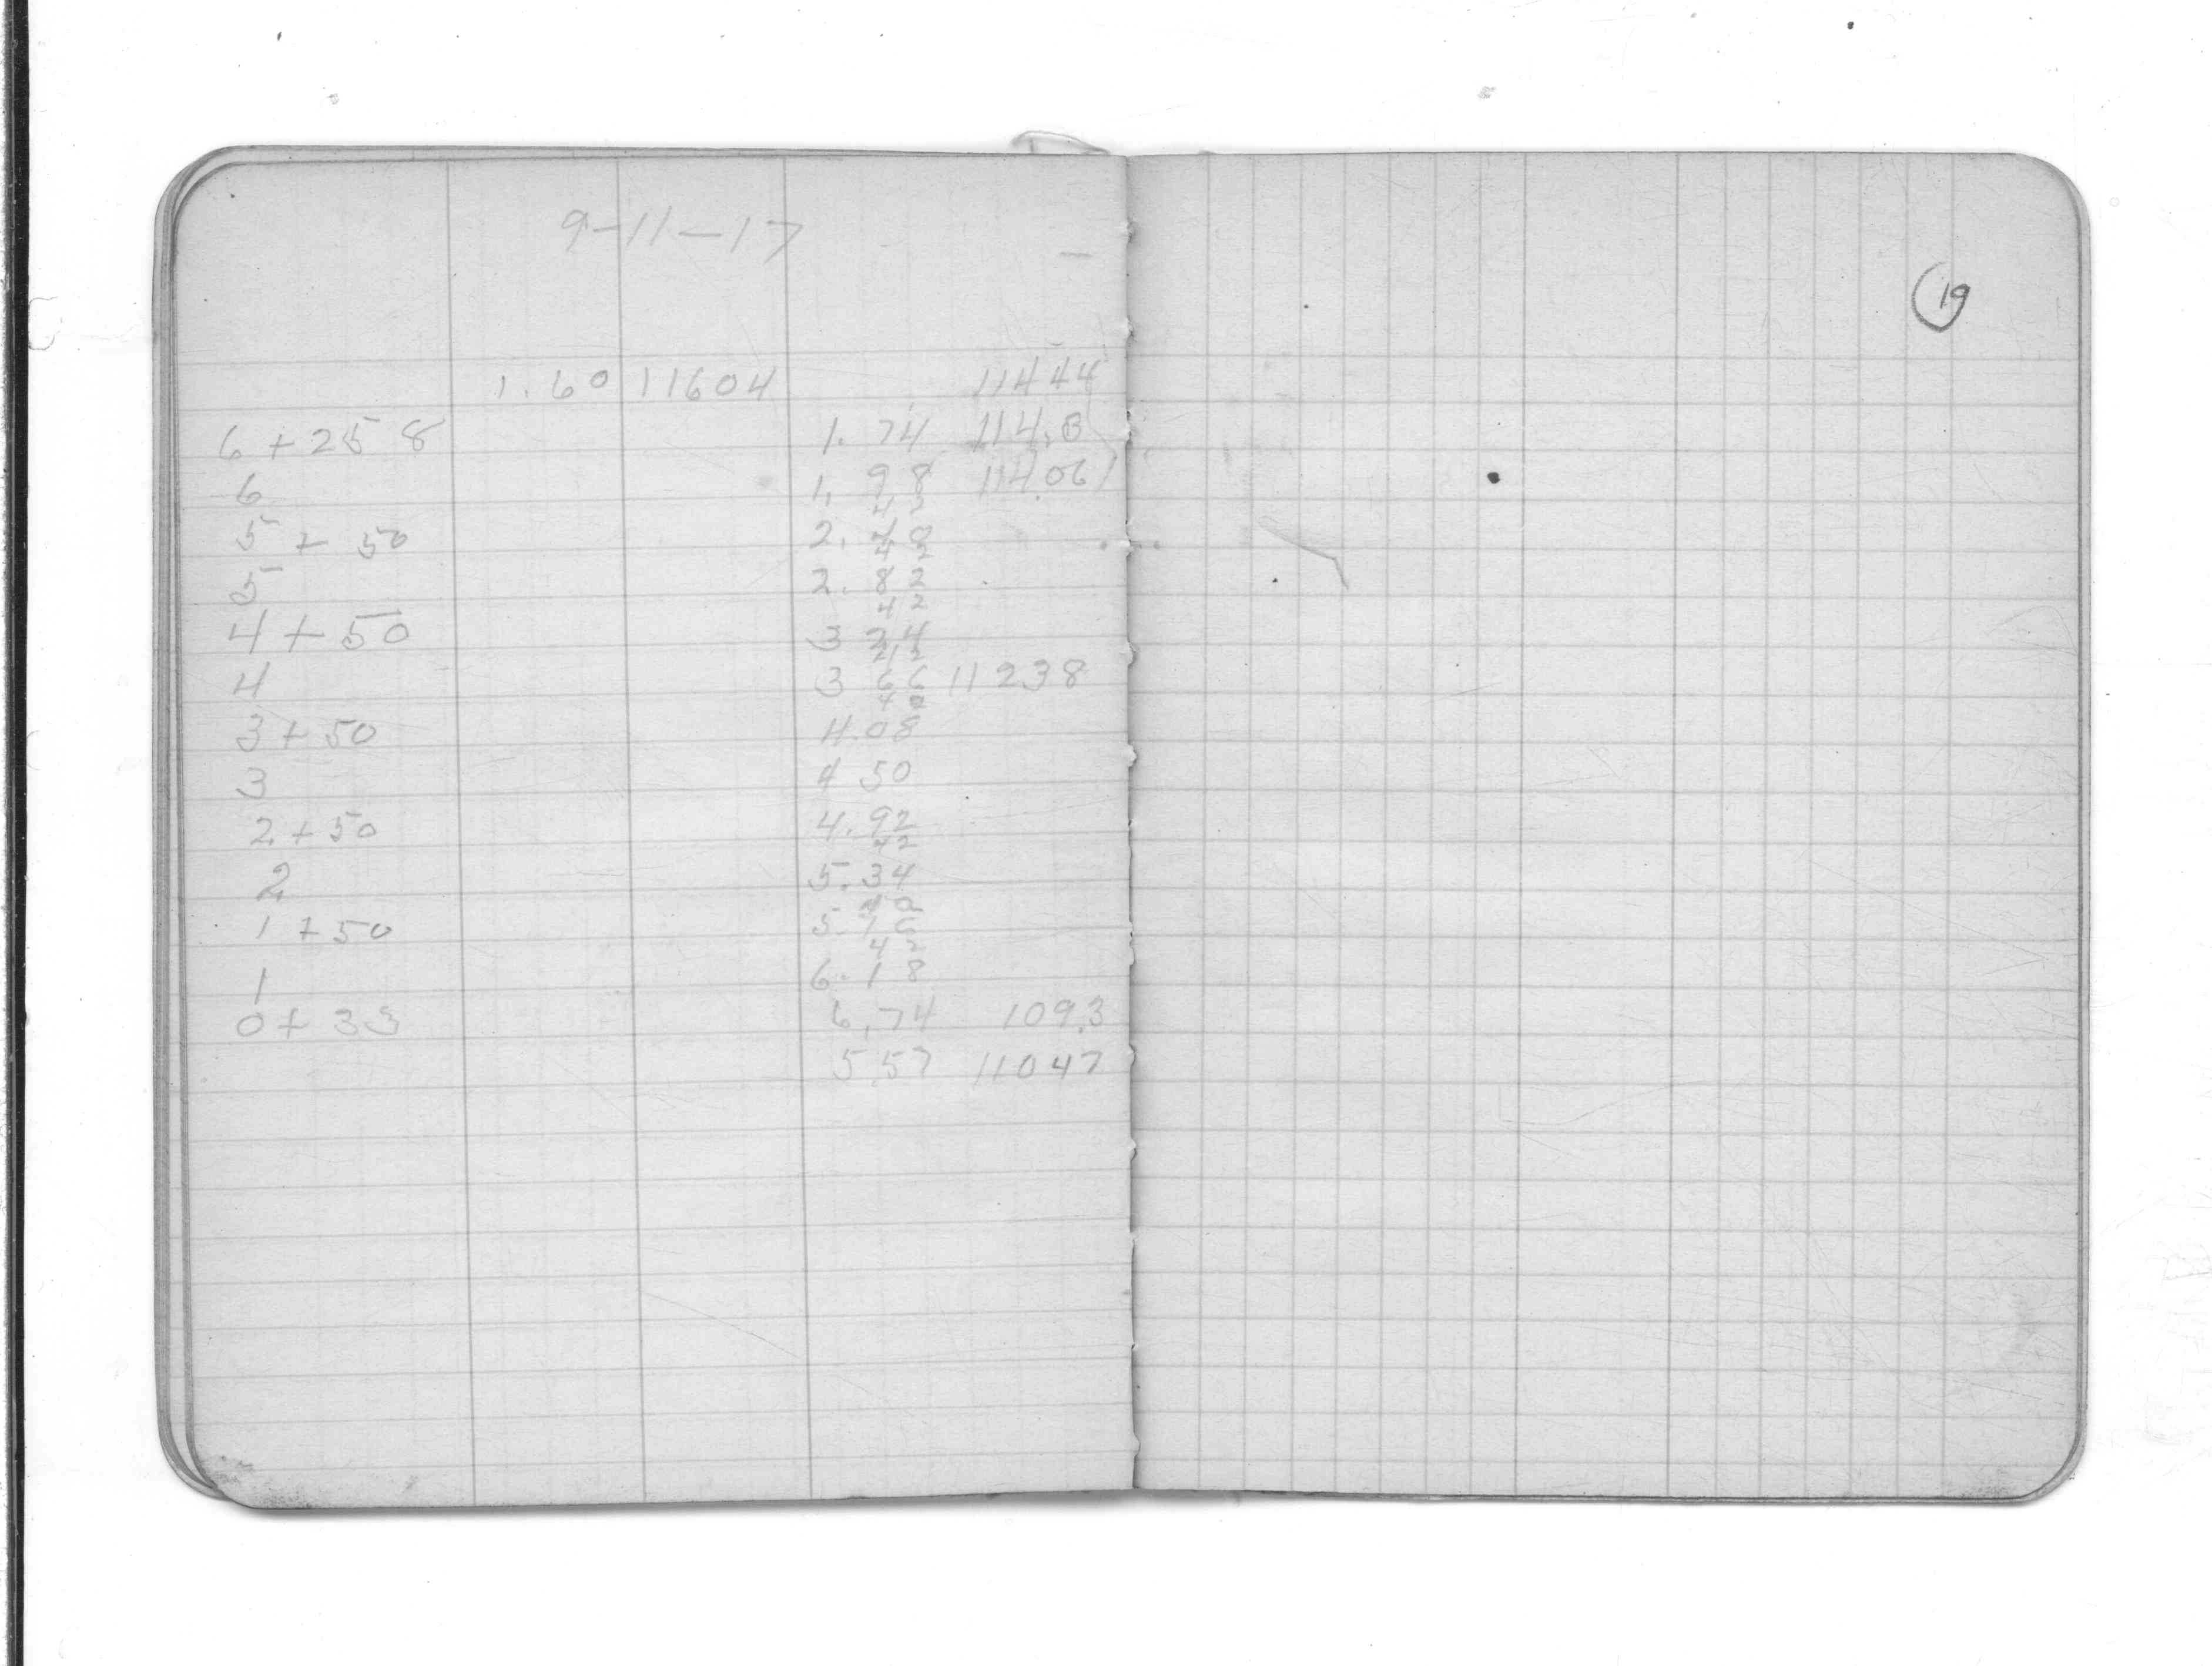 9-11-17
1.60 11604 11444
6+25 8 1.74 114.3
6 1.98 114.06
4 2
5+50 2.40
4 2
5 2.82
4 2
4+50 3 24
42
4 3 66 11238
42
3+50 4.08
3 4 50
2+50 4.92
42
2 5.34
42
1+50 5.76
4 2
1 6.18
0+33 6.74 109.3
5.57 11047
19